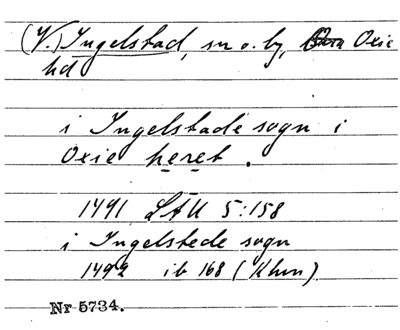 (V.) Ingelstad, sn o. by, Oxie
hd
i Ingelstade sogn i
Oxie heret.
1491 LÄU 5:158
i Ingelstede sogn
1492 ib 168 (Khvn).
Nr 5734.